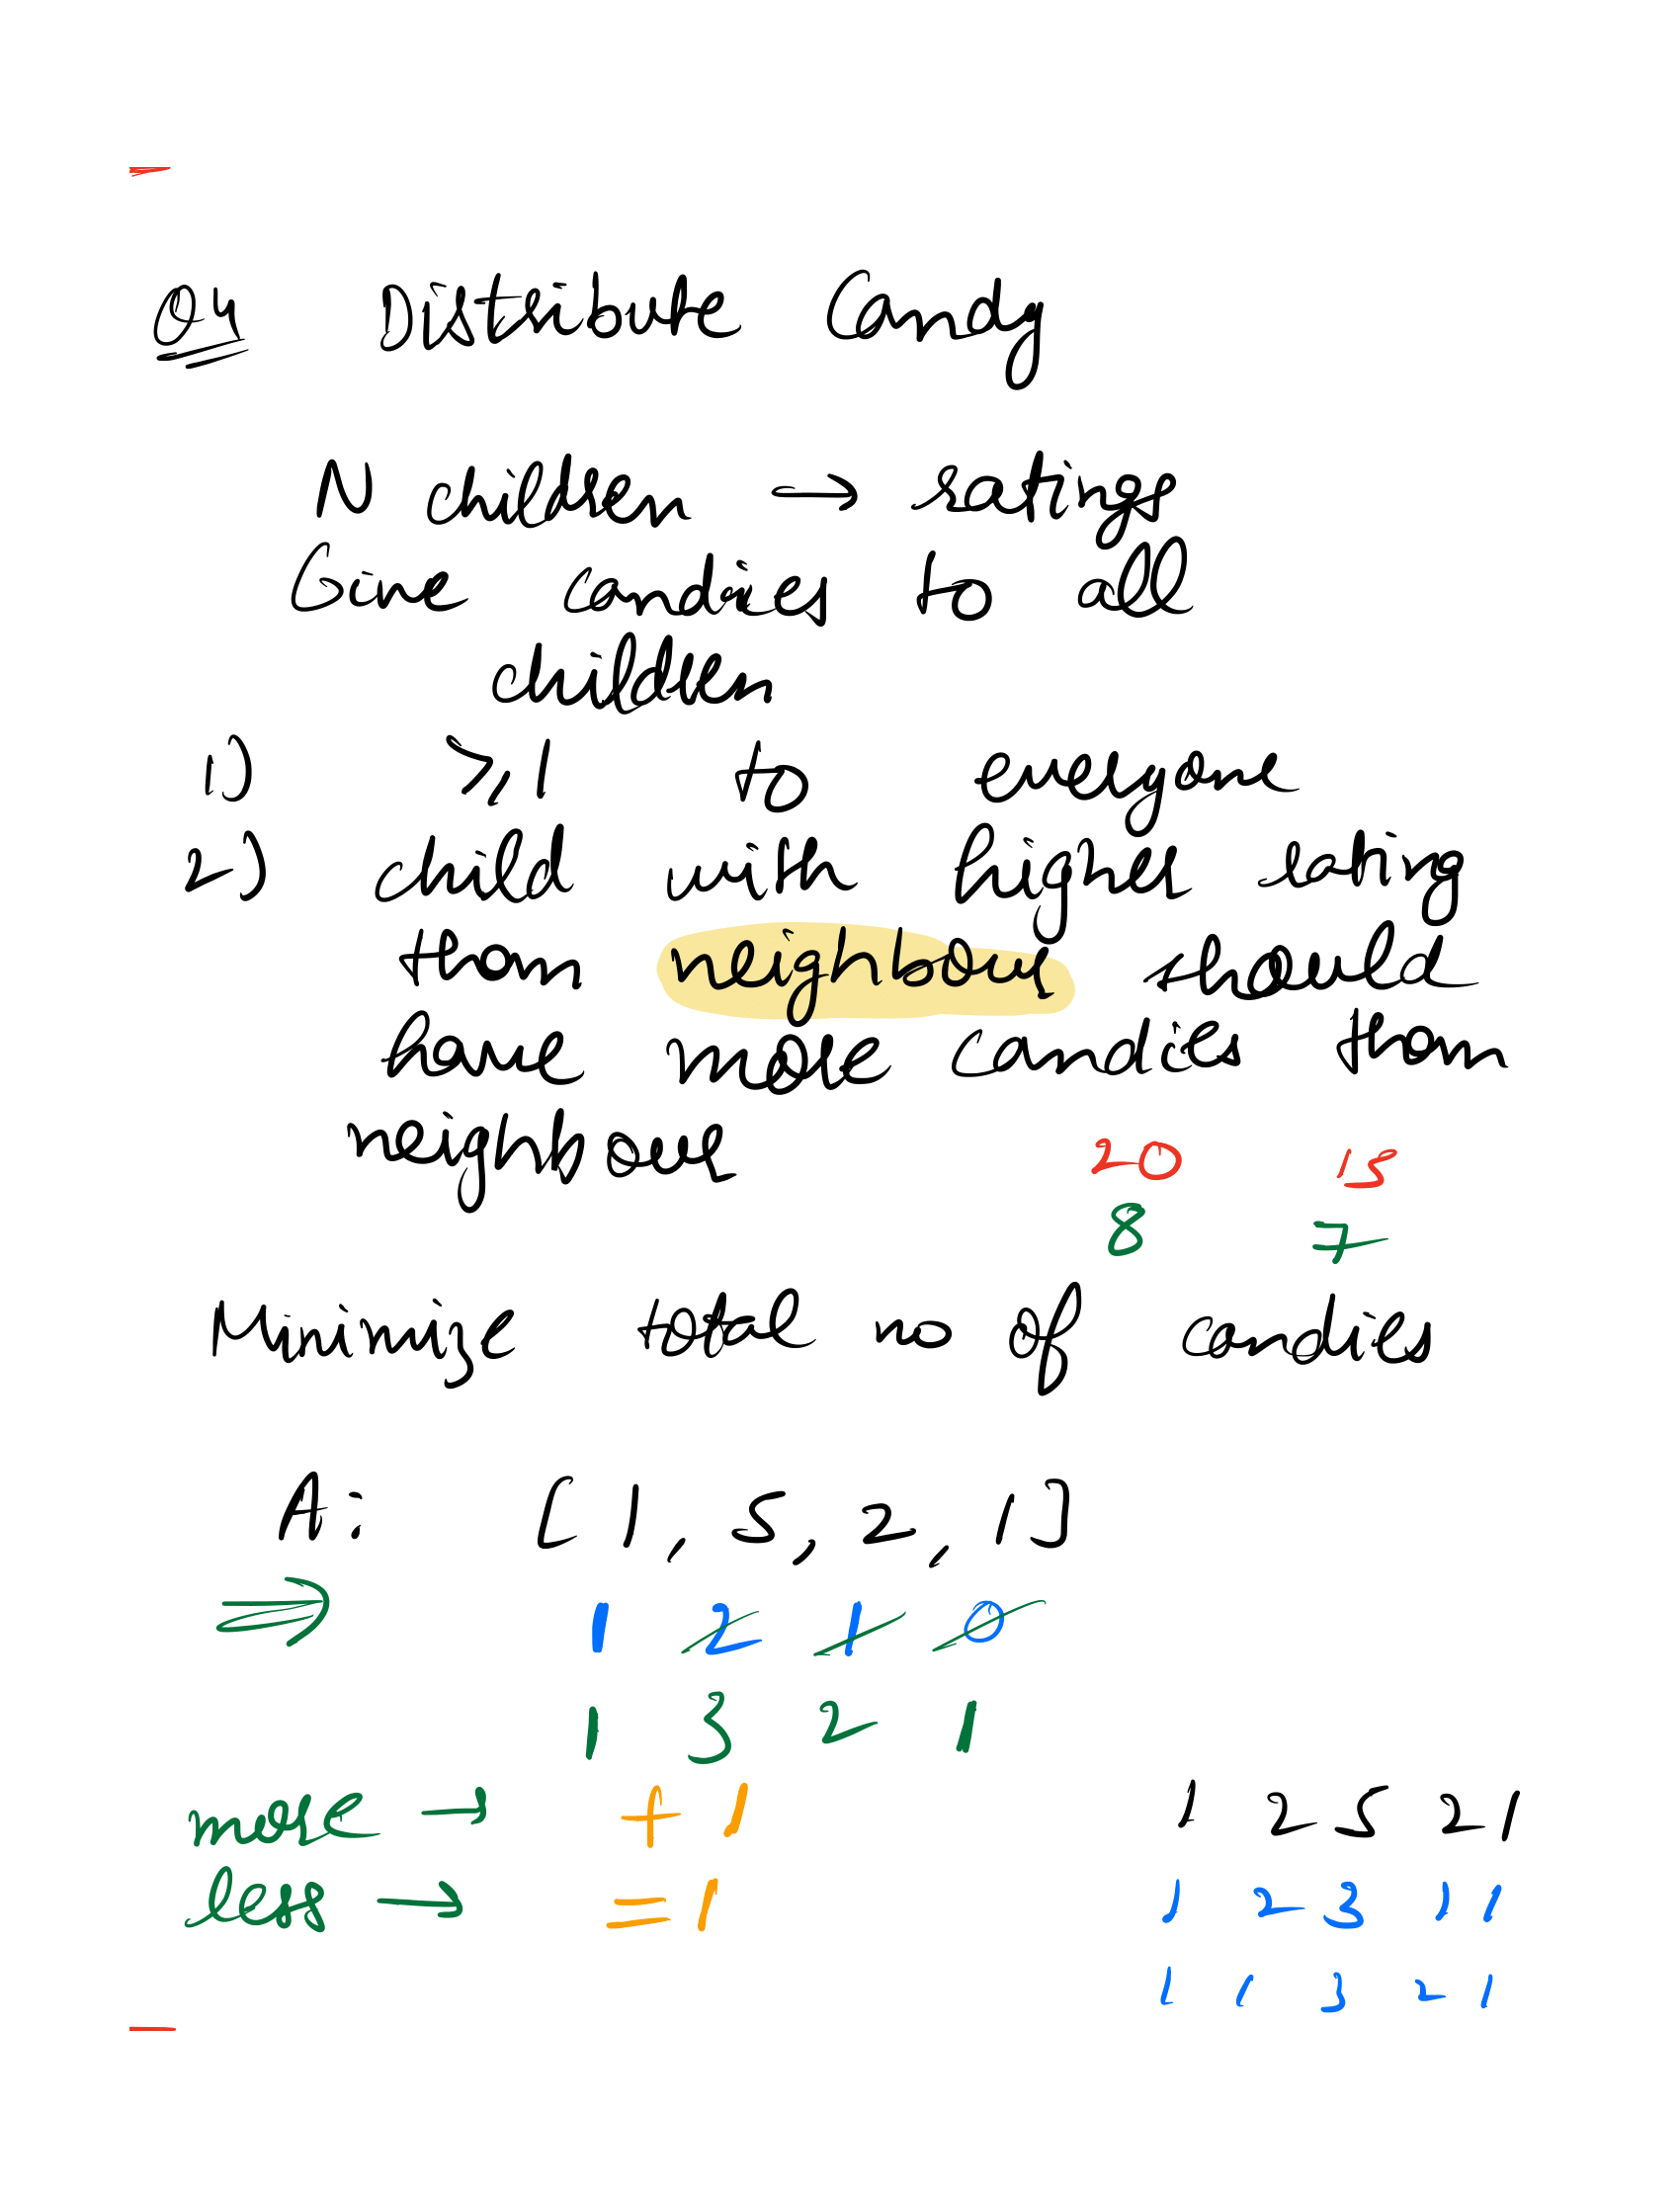 Q4 Distribute Candy
N children → ratings
Give candies to all
children
1) ≥1 to everyone
2) child with higher rating
than neighbour should
have more candies than
neighbour
20 15
8 7
Minimize total no of candies
A: [1, 5, 2, 1]
⇒ 1 2 1 0
1 3 2 1
more → + 1
less → = 1
1 2 5 2 1
1 2 3 1 1
1 1 3 2 1